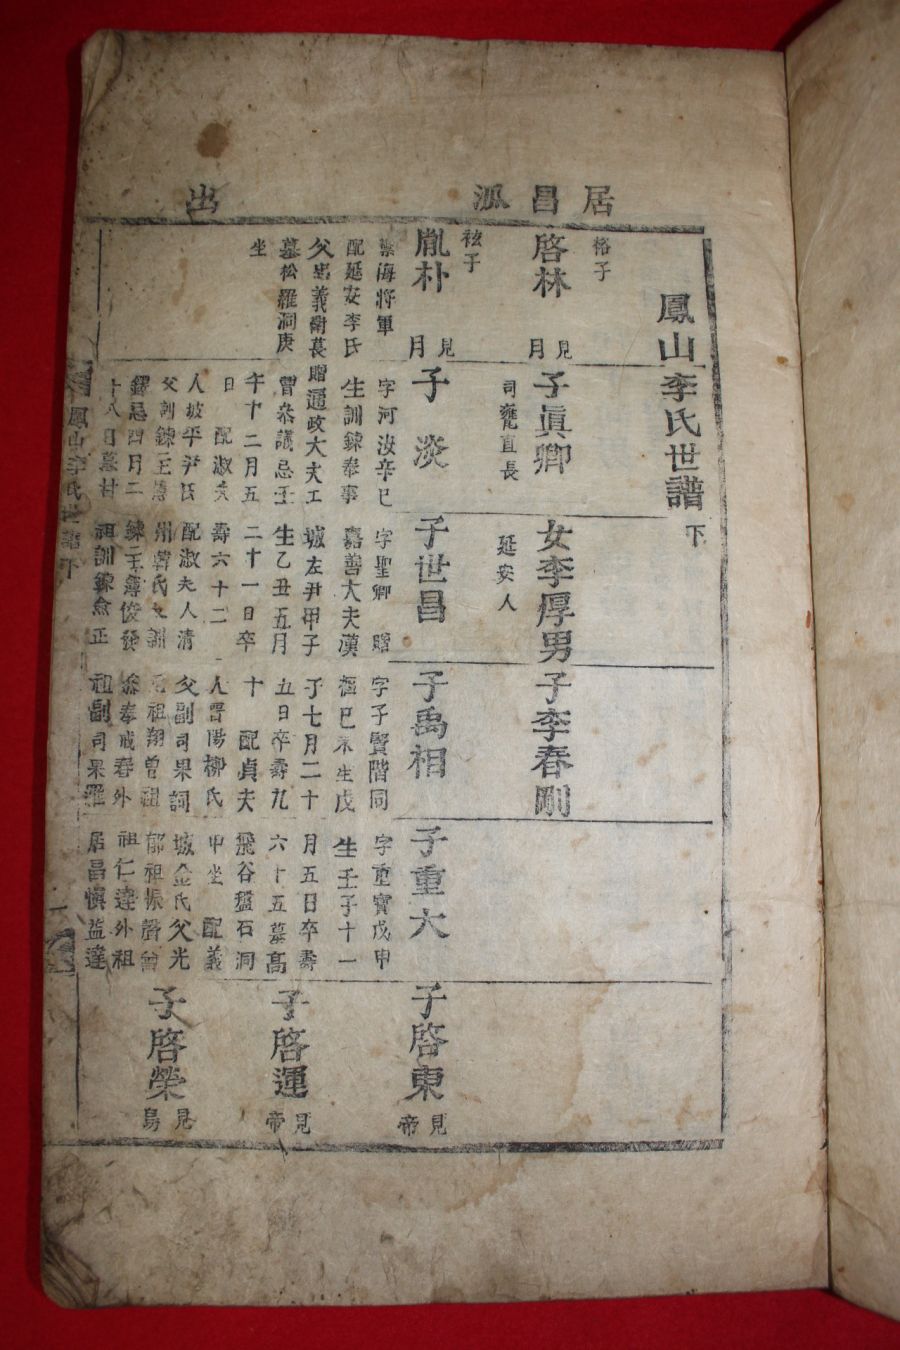 居昌派
出
鳳山李氏世譜 下
格子
啓林
見月
子眞卿
司甕直長
女李厚男
延安人
子李春剛
玹子
胤朴
見月
禦海將軍
配延安李氏
父忠義衛萇
墓松羅洞庚
坐
子淡
字河汝辛巳
生訓鍊奉事
贈通政大夫工
曹參議忌壬
午十二月五
日 配淑夫
人坡平尹氏
父訓鍊主簿
忌四月二
十八日墓村
子世昌
字聖卿 贈
嘉善大夫漢
城左尹甲子
生乙丑五月
二十一日卒
壽六十二
配淑夫人淸
州韓氏父訓
鍊主簿俊發
祖訓鍊僉正
子禹相
字子賢階同
樞己未生戊
子七月二十
五日卒壽九
十 配貞夫
人晋陽柳氏
父副司果詞
祖翔曾祖
參奉戒春外
祖副司果羅
子重大
字重寶戊申
生壬子十一
月五日卒壽
六十五墓高
飛谷盤石洞
甲坐 配義
城金氏父光
郁祖振聲曾
祖仁達外祖
居昌愼益達
子啓東
見帝
子啓運
見帝
子啓榮
見鳥
鳳山李氏世譜下
一